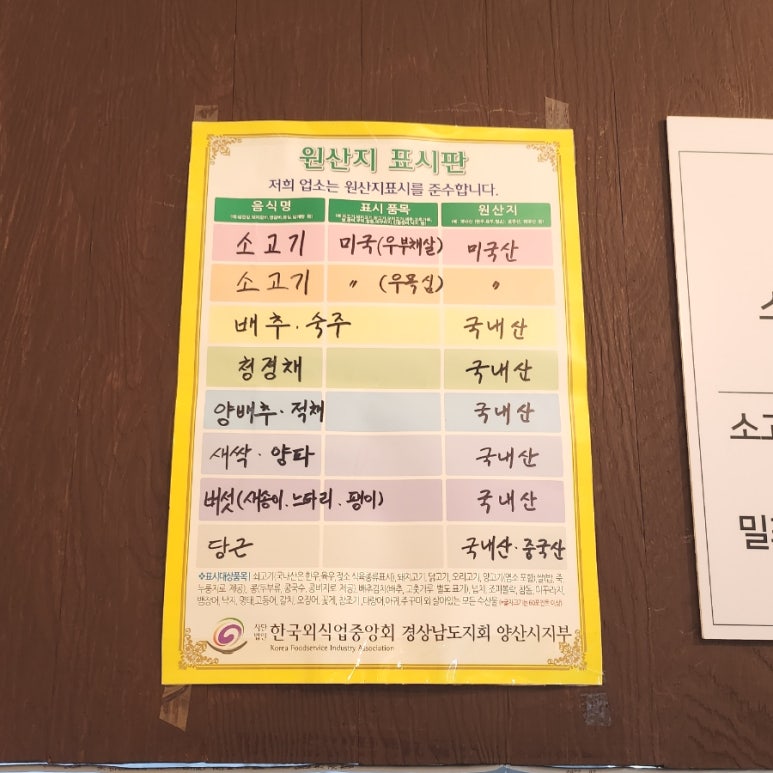 원산지 표시판
저희 업소는 원산지표시를 준수합니다.
음식명 표시 품목 원산지
소고기 미국(우부채살) 미국산
소고기 〃 (우목심) 〃
배추·숙주 국내산
청경채 국내산
양배추·적채 국내산
새싹·양파 국내산
버섯(새송이.느타리.팽이) 국내산
당근 국내산·중국산
※표시대상품목| 쇠고기(국내산은 한우, 육우, 젖소 식육종류표시), 돼지고기, 닭고기, 오리고기, 양고기(염소 포함), 쌀(밥, 죽,
누룽지로 제공), 콩(두부류, 콩국수, 콩비지로 제공), 배추김치(배추, 고춧가루 별도 표기), 넙치, 조피볼락, 참돔, 미꾸라지,
뱀장어, 낙지, 명태, 고등어, 갈치, 오징어, 꽃게, 참조기, 다랑어, 아귀, 주꾸미 외 살아있는 모든 수산물
사단법인 한국외식업중앙회 경상남도지회 양산시지부
Korea Foodservice Industry Association
소고
밀